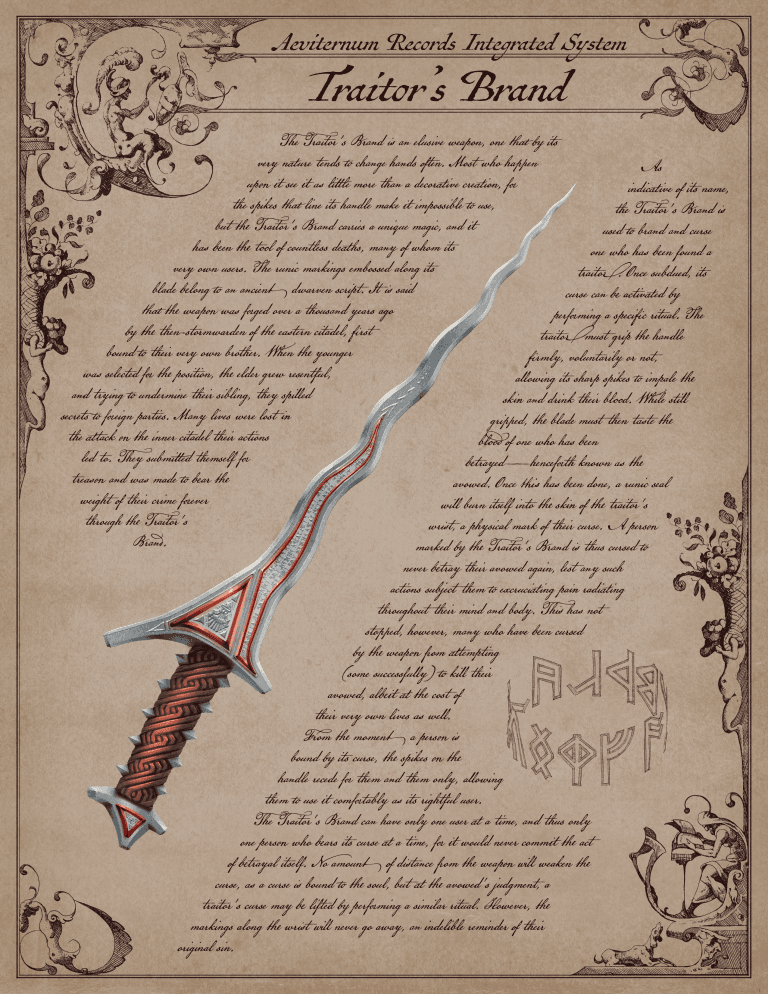 Aeviternum Records Integrated System
Traitor's Brand
The Traitor's Brand is an elusive weapon, one that by its
very nature tends to change hands often. Most who happen
upon it see it as little more than a decorative creation, for
the spikes that line its handle make it impossible to use,
but the Traitor's Brand carries a unique magic, and it
has been the tool of countless deaths, many of whom its
very own users. The runic markings embossed along its
blade belong to an ancient dwarven script. It is said
that the weapon was forged over a thousand years ago
by the then-stormwarden of the eastern citadel, first
bound to their very own brother. When the younger
was selected for the position, the elder grew resentful,
and trying to undermine their sibling, they spilled
secrets to foreign parties. Many lives were lost in
the attack on the inner citadel their actions
led to. They submitted themself for
treason and was made to bear the
weight of their crime forever
through the Traitor's
Brand.
As
indicative of its name,
the Traitor's Brand is
used to brand and curse
one who has been found a
traitor. Once subdued, its
curse can be activated by
performing a specific ritual. The
traitor must grip the handle
firmly, voluntarily or not,
allowing its sharp spikes to impale the
skin and drink their blood. While still
gripped, the blade must then taste the
blood of one who has been
betrayed—henceforth known as the
avowed. Once this has been done, a runic seal
will burn itself into the skin of the traitor's
wrist, a physical mark of their curse. A person
marked by the Traitor's Brand is thus cursed to
never betray their avowed again, lest any such
actions subject them to excruciating pain radiating
throughout their mind and body. This has not
stopped, however, many who have been cursed
by the weapon from attempting
(some successfully) to kill their
avowed, albeit at the cost of
their very own lives as well.
From the moment a person is
bound by its curse, the spikes on the
handle recede for them and them only, allowing
them to use it comfortably as its rightful user.
The Traitor's Brand can have only one user at a time, and thus only
one person who bears its curse at a time, for it would never commit the act
of betrayal itself. No amount of distance from the weapon will weaken the
curse, as a curse is bound to the soul, but at the avowed's judgment, a
traitor's curse may be lifted by performing a similar ritual. However, the
markings along the wrist will never go away, an indelible reminder of their
original sin.